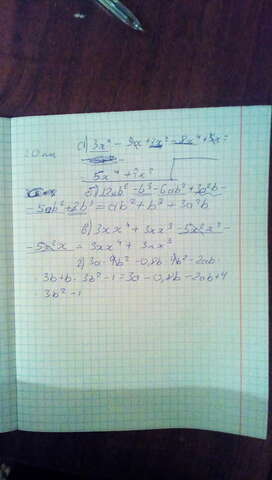 а) 3x⁴ - 9x + 7x² - 8x⁴ + 9x =
5x⁴ + 7x²
б) 12ab² - b³ - 6ab² + 3a²b -
- 5ab² + 2b³ = ab² + b³ + 3a²b
в) 3xx⁴ + 3xx³ - 5x²x³ -
- 5x²x = 3xx⁴ + 3xx³
г) 3a · 4b² - 0,8b · 4b² - 2ab ·
· 3b + b · 3b² - 1 = 3a - 0,8b - 2ab + 4
3b² - 1